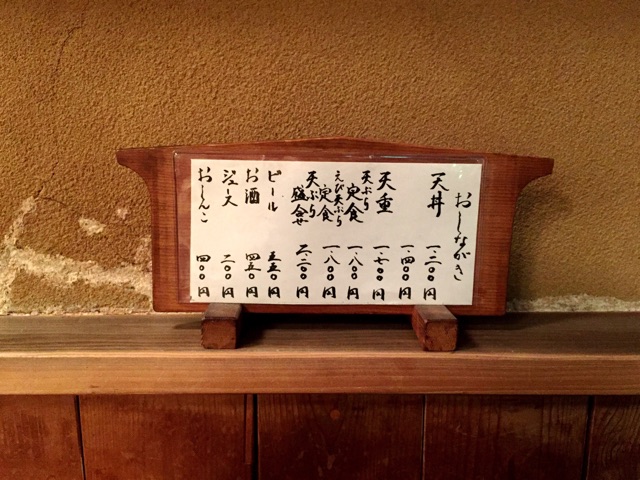 おしながき
天丼 一.二〇〇円
一.四〇〇円
天重 一.七〇〇円
天ぷら定食 一.八〇〇円
えび天ぷら定食 一.八〇〇円
天ぷら盛合せ 二.二〇〇円
ビール 五五〇円
お酒 四五〇円
ジュース 二〇〇円
おしんこ 四〇〇円